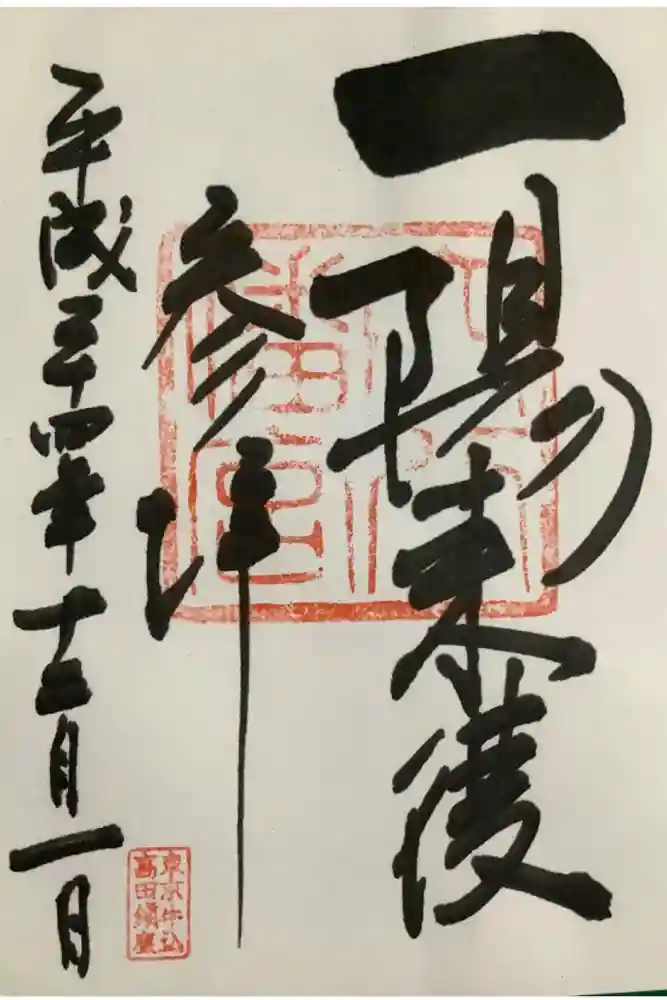 一陽来復
参拝
平成二十四年十二月一日
穴八
幡宮
東京牛込
高田鎮座